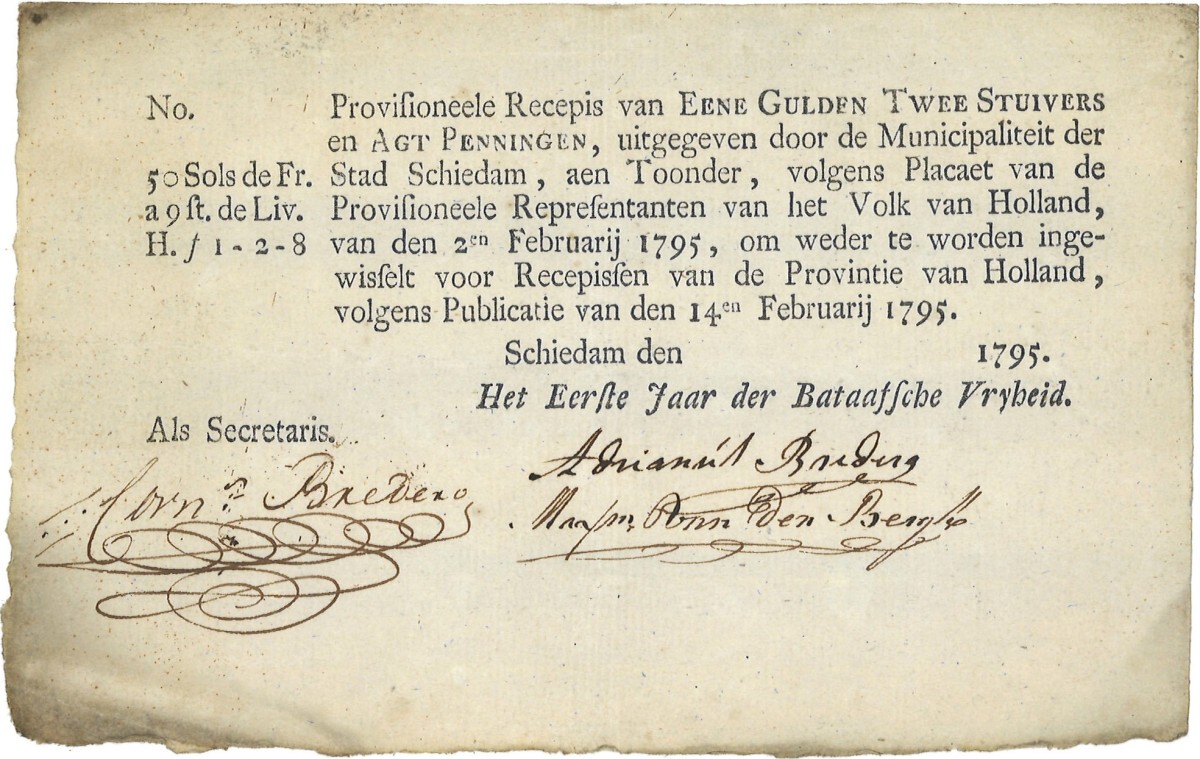 No. Proviſioneele Recepis van EENE GULDEN TWEE STUIVERS
en AGT PENNINGEN, uitgegeven door de Municipaliteit der
50 Sols de Fr. Stad Schiedam, aen Toonder, volgens Placaet van de
a 9 ſt. de Liv. Proviſioneele Repreſentanten van het Volk van Holland,
H. ƒ 1 - 2 - 8 van den 2en Februarij 1795, om weder te worden inge-
wisſelt voor Recepisſen van de Provintie van Holland,
volgens Publicatie van den 14en Februarij 1795.
Schiedam den 1795.
Het Eerſte Jaar der Bataafſche Vryheid.
Als Secretaris.
Corns. Bredero
Den Bergh